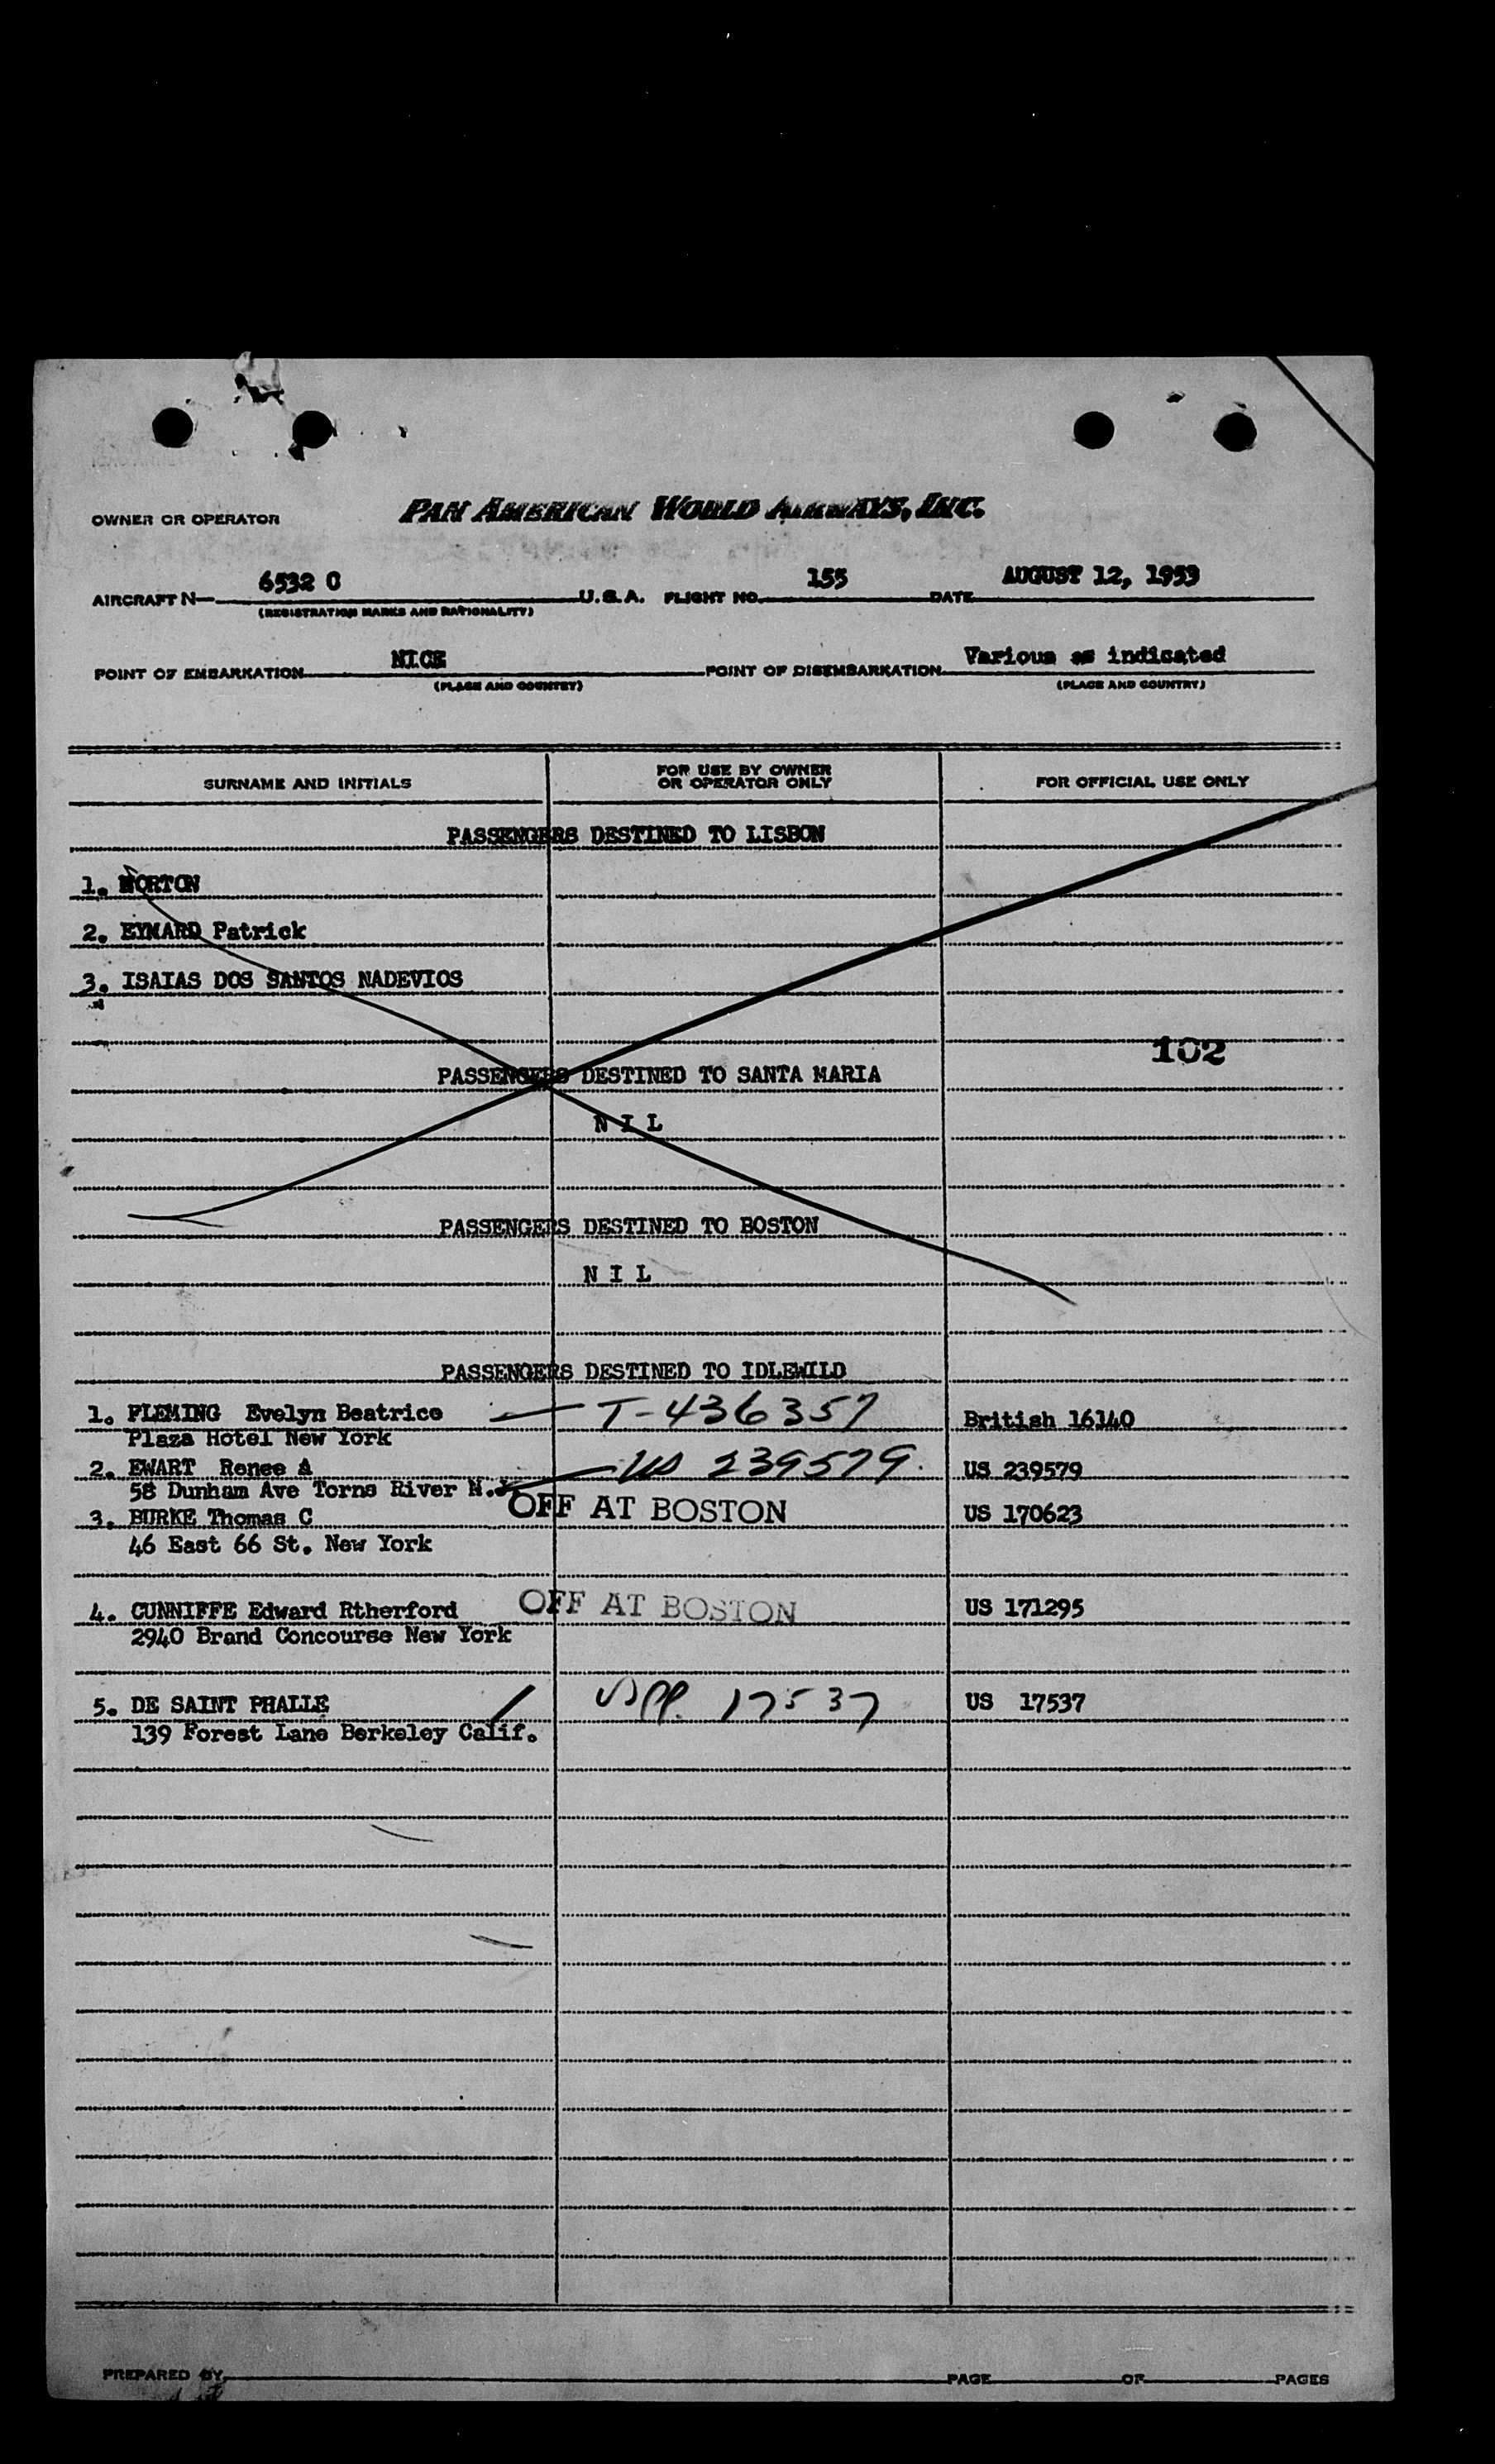 OWNER OR OPERATOR PAN AMERICAN WORLD AIRWAYS, INC.
AIRCRAFT N— 6532 C U.S.A. FLIGHT NO. 155 DATE AUGUST 12, 1953
(REGISTRATION MARKS AND NATIONALITY)
POINT OF EMBARKATION NICE POINT OF DISEMBARKATION Various as indicated
(PLACE AND COUNTRY) (PLACE AND COUNTRY)
SURNAME AND INITIALS FOR USE BY OWNER OR OPERATOR ONLY FOR OFFICIAL USE ONLY
PASSENGERS DESTINED TO LISBON
1. NORTON
2. EYMARD Patrick
3. ISAIAS DOS SANTOS NADEVIOS
102
PASSENGERS DESTINED TO SANTA MARIA
N I L
PASSENGERS DESTINED TO BOSTON
N I L
PASSENGERS DESTINED TO IDLEWILD
1. FLEMING Evelyn Beatrice — T-436357 British 16140
Plaza Hotel New York
2. EWART Renee A — US 239579. US 239579
58 Dunham Ave Torns River N.J
3. BURKE Thomas C OFF AT BOSTON US 170623
46 East 66 St. New York
4. CUNNIFFE Edward Rtherford OFF AT BOSTON US 171295
2940 Brand Concourse New York
5. DE SAINT PHALLE / USPP. 17537 US 17537
139 Forest Lane Berkeley Calif.
PREPARED BY PAGE OF PAGES